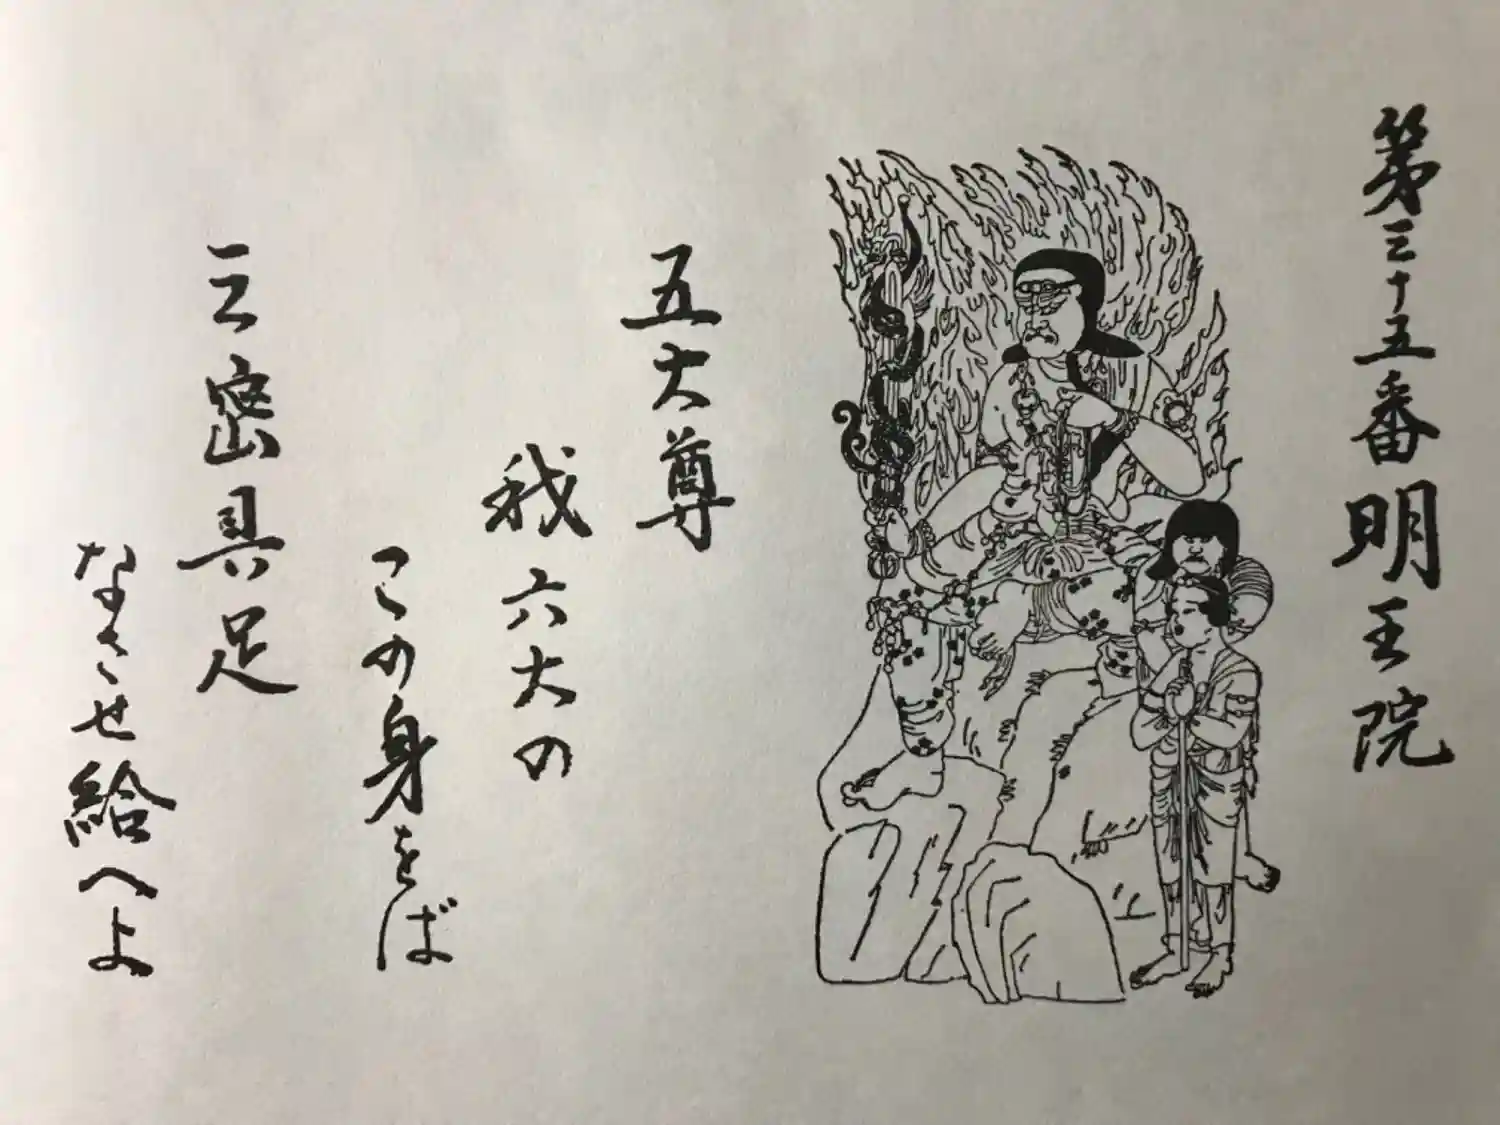 第三十五番明王院
五大尊
我六大の
この身をば
三密具足
なさせ給へよ